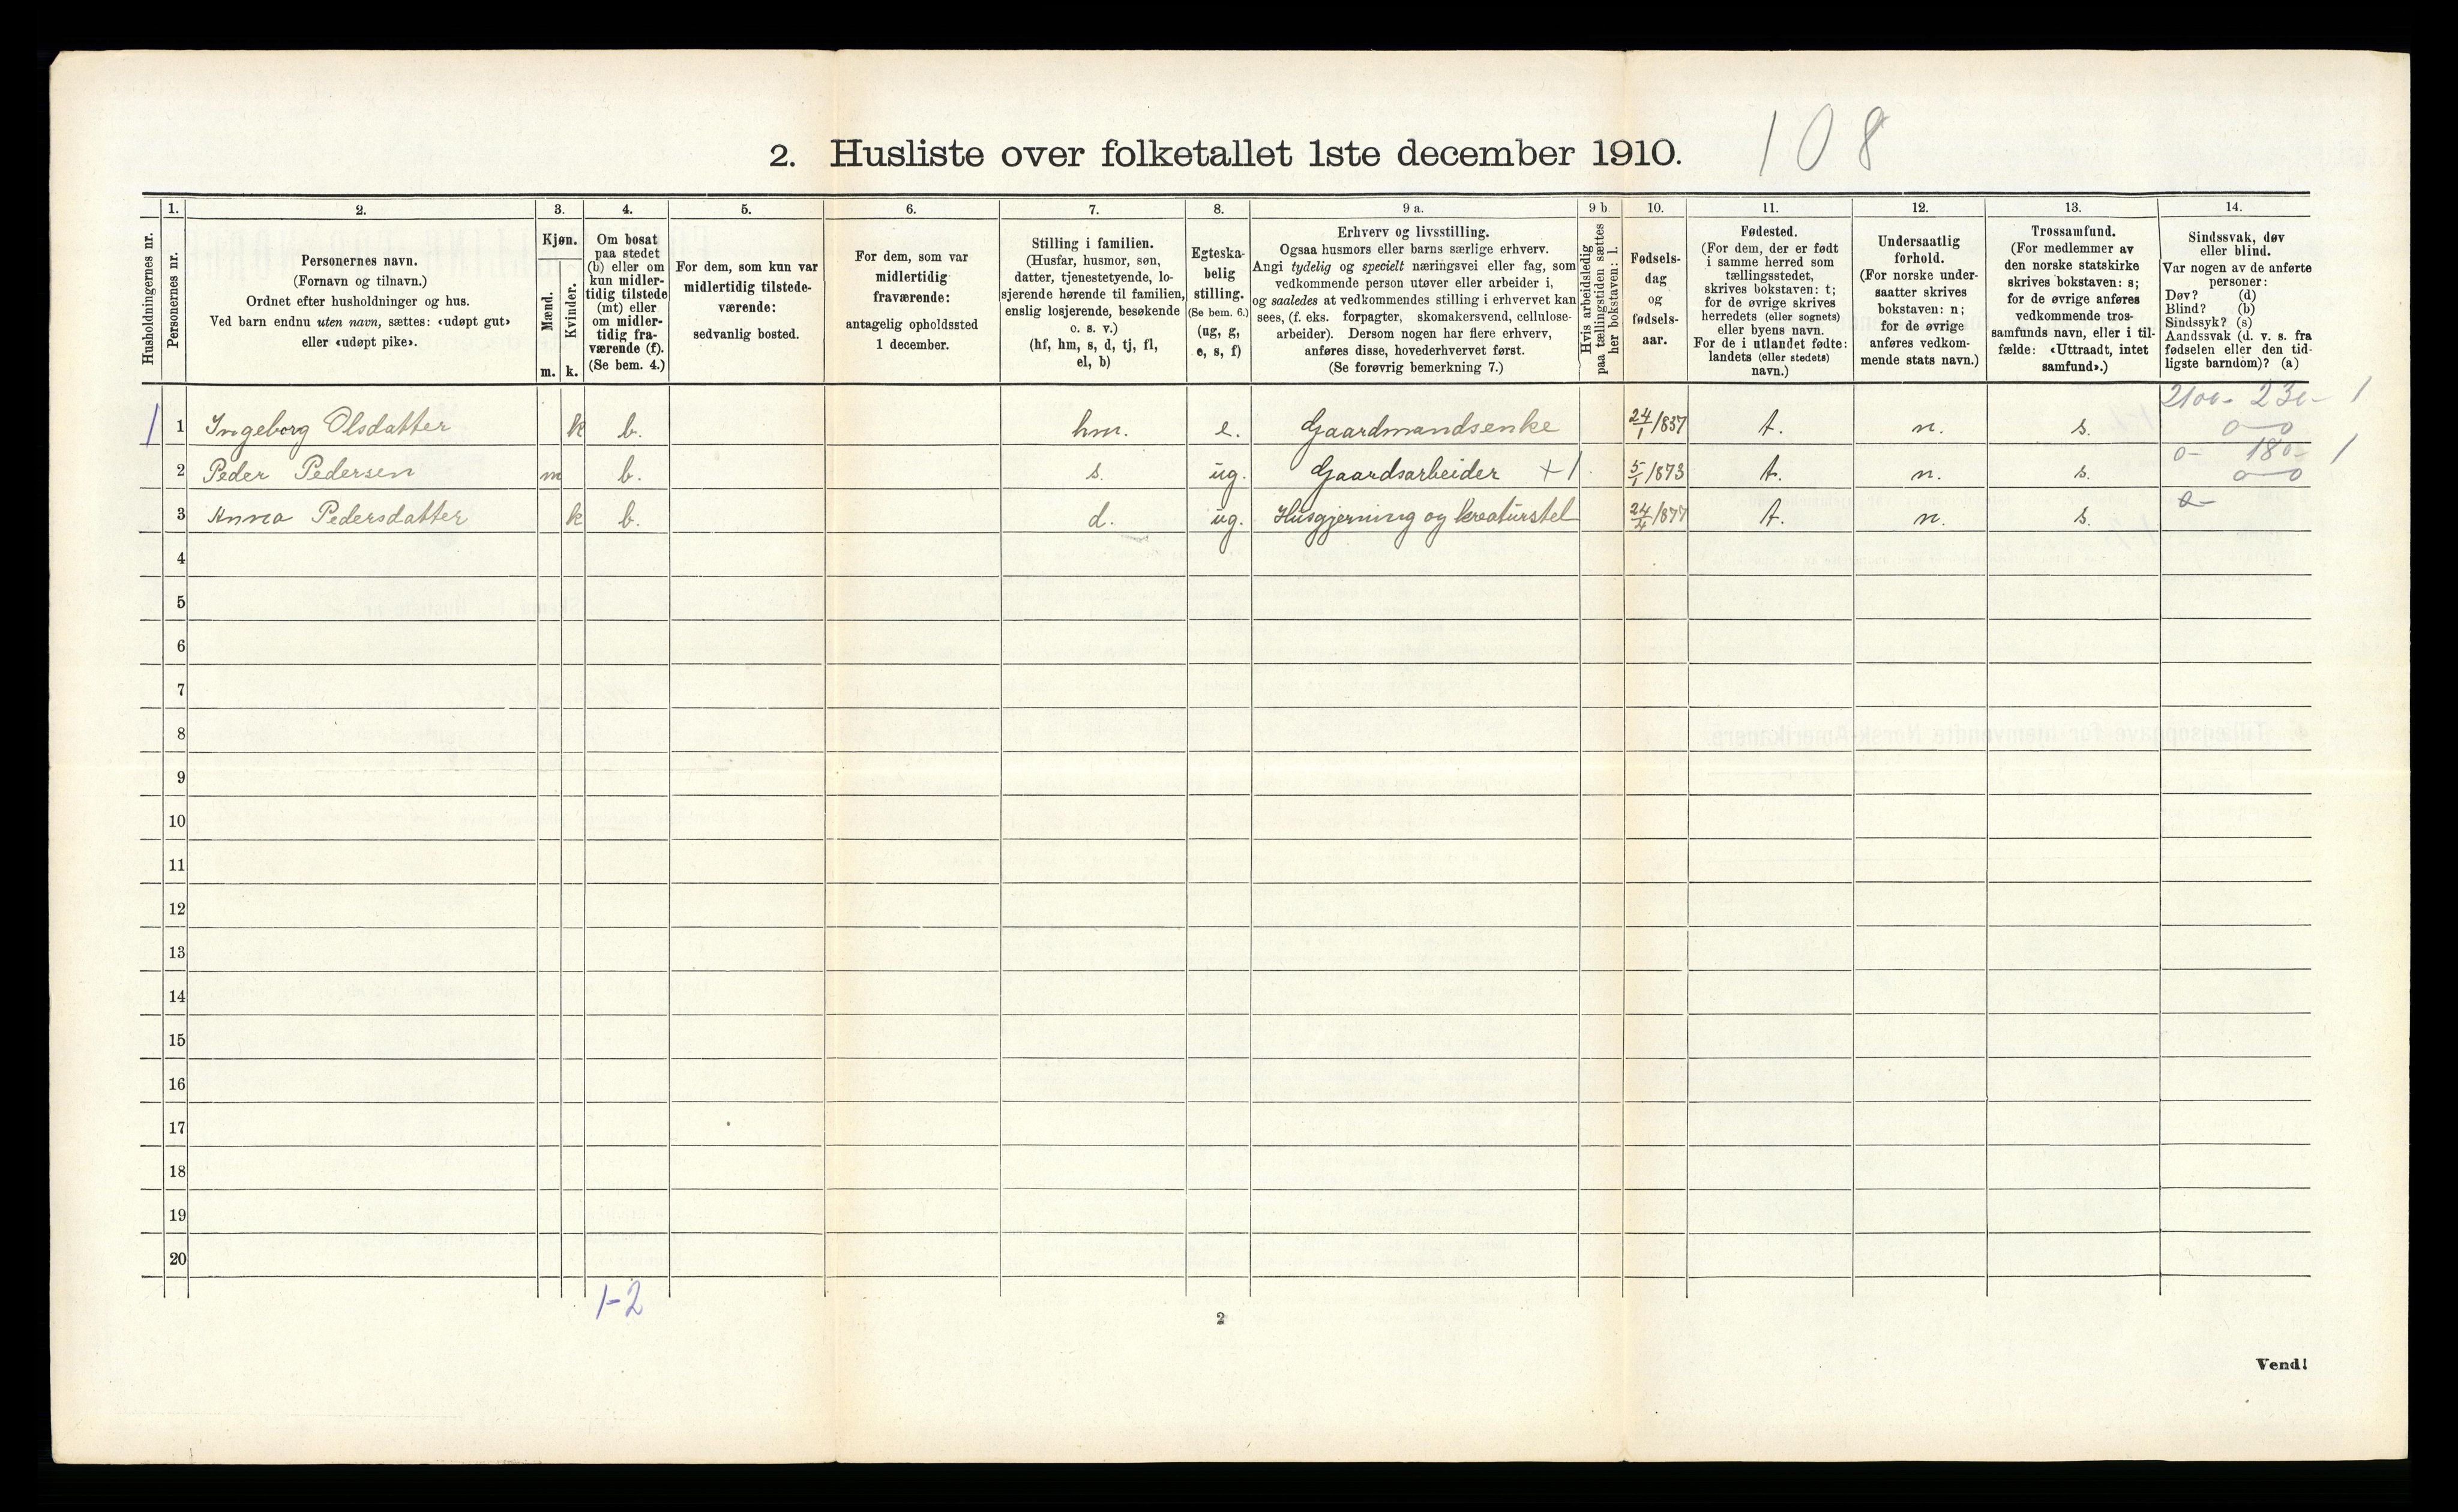 2. Husliste over folketallet 1ste december 1910. 108
Husholdningernes nr.
1.
Personernes nr.
2.
Personernes navn.
(Fornavn og tilnavn.)
Ordnet efter husholdninger og hus.
Ved barn endnu uten navn, sættes: «udøpt gut»
eller «udøpt pike».
3.
Kjøn.
Mænd.
m.
Kvinder.
k.
4.
Om bosat
paa stedet
(b) eller om
kun midler-
tidig tilstede
(mt) eller
om midler-
tidig fra-
værende (f).
(Se bem. 4.)
5.
For dem, som kun var
midlertidig tilstede-
værende:
sedvanlig bosted.
6.
For dem, som var
midlertidig
fraværende:
antagelig opholdssted
1 december.
7.
Stilling i familien.
(Husfar, husmor, søn,
datter, tjenestetyende, lo-
sjerende hørende til familien,
enslig losjerende, besøkende
o. s. v.)
(hf, hm, s, d, tj, fl,
el, b)
8.
Egteska-
belig
stilling.
(Se bem. 6.)
(ug, g,
e, s, f)
9 a.
Erhverv og livsstilling.
Ogsaa husmors eller barns særlige erhverv.
Angi tydelig og specielt næringsvei eller fag, som
vedkommende person utøver eller arbeider i,
og saaledes at vedkommendes stilling i erhvervet kan
sees, (f. eks. forpagter, skomakersvend, cellulose-
arbeider). Dersom nogen har flere erhverv,
anføres disse, hovederhvervet først.
(Se forøvrig bemerkning 7.)
9 b
Hvis arbeidsledig
paa tællingstiden sættes
her bokstaven: l.
10.
Fødsels-
dag
og
fødsels-
aar.
11.
Fødested.
(For dem, der er født
i samme herred som
tællingsstedet,
skrives bokstaven: t;
for de øvrige skrives
herredets (eller sognets)
eller byens navn.
For de i utlandet fødte:
landets (eller stedets)
navn.)
12.
Undersaatlig
forhold.
(For norske under-
saatter skrives
bokstaven: n;
for de øvrige
anføres vedkom-
mende stats navn.)
13.
Trossamfund.
(For medlemmer av
den norske statskirke
skrives bokstaven: s;
for de øvrige anføres
vedkommende tros-
samfunds navn, eller i til-
fælde: «Uttraadt, intet
samfund».)
14.
Sindssvak, døv
eller blind.
Var nogen av de anførte
personer:
Døv? (d)
Blind? (b)
Sindssyk? (s)
Aandssvak (d. v. s. fra
fødselen eller den tid-
ligste barndom)? (a)
2100- 230- 1
1 1 Ingeborg Olsdatter k b. hm. e. Gaardmandsenke 24/1 /837 t. n. s. 0-0
0- 180- 1
2 Peder Pedersen m b. s. ug. Gaardsarbeider +1 5/1 /873 t. n. s. 0-0
3 Anna Pedersdatter k b. d. ug. Husgjerning og kreaturstel 24/4 /877 t. n. s. 0-
4
5
6
7
8
9
10
11
12
13
14
15
16
17
18
19
20
1-2
2
Vend!